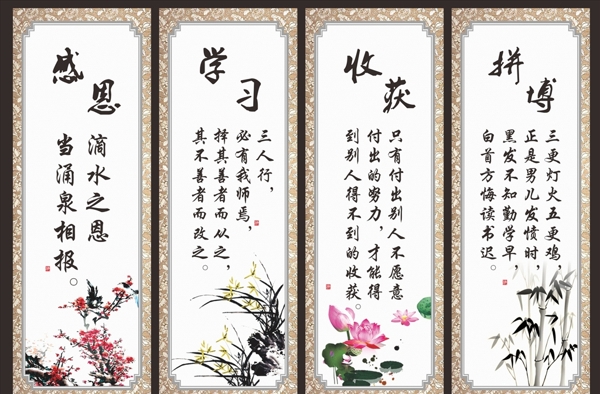 感恩
滴水之恩
当涌泉相报。
学习
三人行，
必有我师焉，
择其善者而从之，
其不善者而改之。
收获
只有付出别人不愿意
付出的努力，才能得
到别人得不到的收获。
拼搏
三更灯火五更鸡
正是男儿发愤时，
黑发不知勤学早，
白首方悔读书迟。